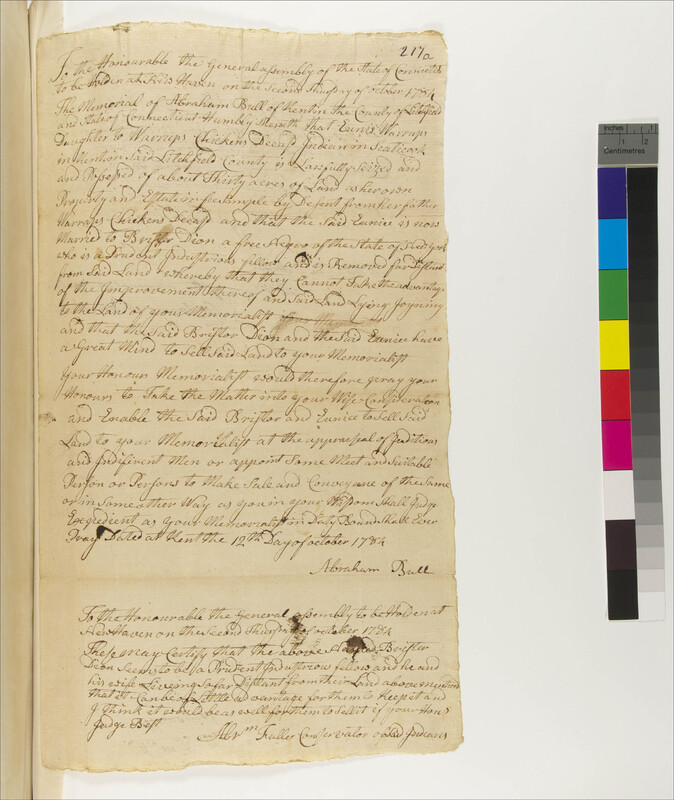 217a
To the Honourable the General assembly of the State of Connecticut
to be holden at New Haven on the Second Thursday of October 1784
The Memorial of Abraham Bull of Kent in the County of Litchfield
and State of Connecticut Humbly Sheweth that Eunice Warrups
Daughter to Warrups Chickens Deceasd Indian in Scaticook
in Kent in Said Litchfield County is Lawfully Seized and
and Possesed of about Thirty acres of Land as her own
Property and Estate in feesimple by Desent from her father
Warrups Chickens Deceasd and that the Said Eunice is now
Married to Brister Dion a free Negro of the State of New york
who is a Prudent Industrious fellow and is Removed far Distant
from Said Land whereby that they Cannot Take the advantage
of the Improvement thereof and Said Land Lying Joyning
to the Land of your Memorialist
and that the Said Brister Dion and the Said Eunice have
a Great Mind to Sell Said Land to your Memorialist
your Honours Memorialist would therefore pray your
Honours to Take the Matter into your Wise Consideration
and Enable the Said Brister and Eunice to Sell Said
Land to your Memorialist at the appraisal of Juditious
and Indifirent Men or appoint Some Meet and Suitable
Person or Persons to Make Sale and Conveyane of the Same
or in Some other Way as you in your Wisdom Shall Judge
Expedient as your Memorialist in Duty Bound Shall Ever
Pray Dated at Kent the 12th Day of October 1784
Abraham Bull
To the Honourable the General assembly to be Holden at
New Haven on the Second Thursday of october 1784
These may Certify that the above Named Brister
Dion Seems to be a Prudent Industrious fellow and he and
his wife Liveing So far Distant from their Land above mention
that it Can be of Little advantage for them to Keep it and
I think it would be as well for them to Sell it if your Honrs
Judge Best
Abrm Fuller Conservator of Said Indians
Inches
1
2
Centimetres